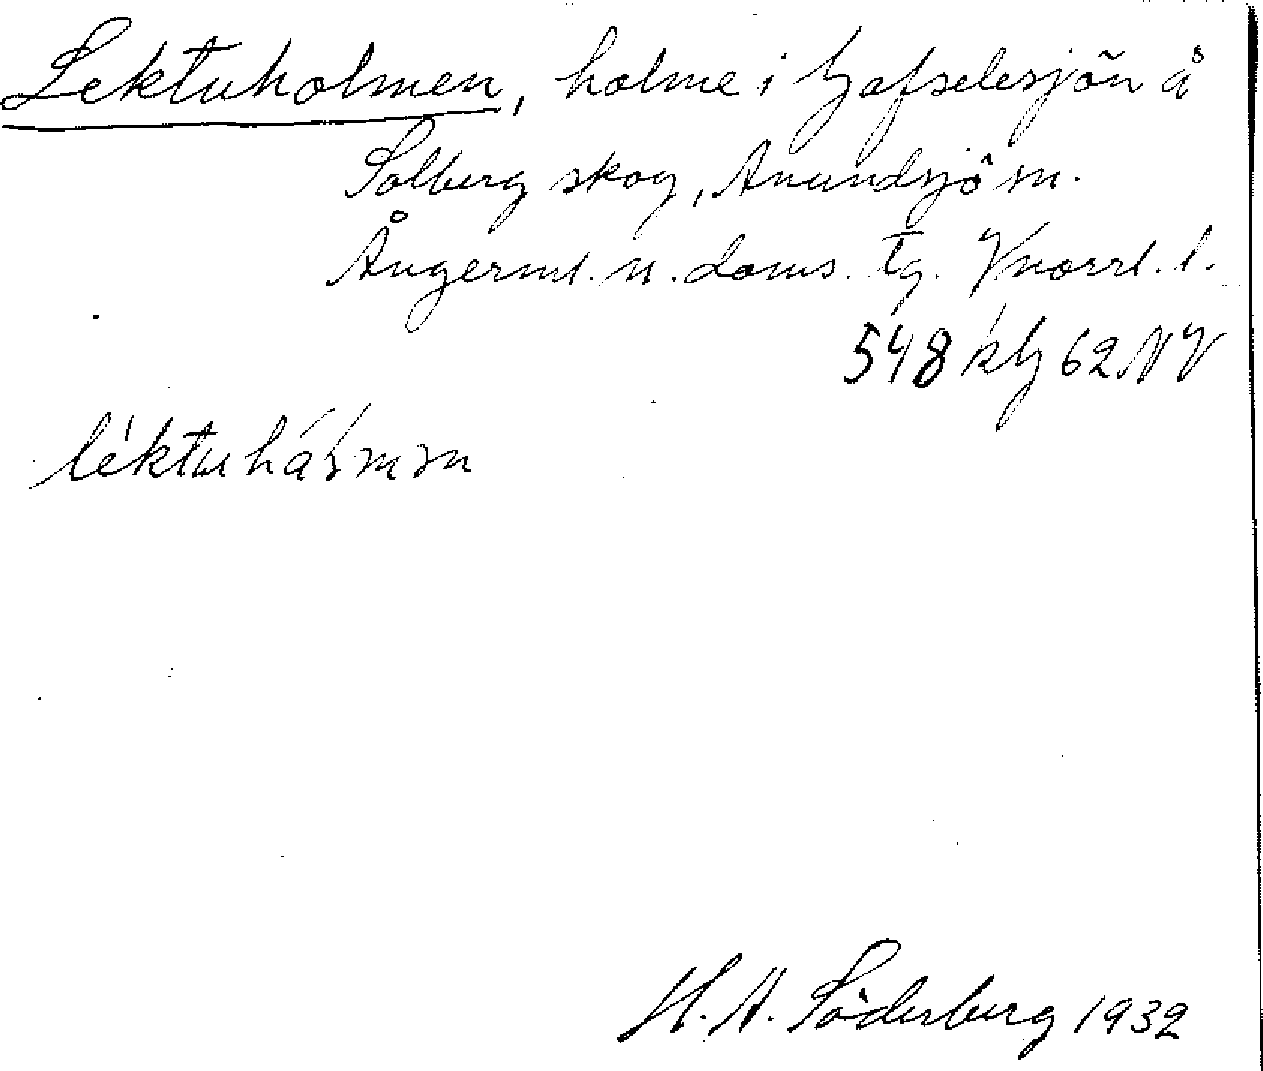 Lektuholmen, holme i Gafselesjön å
Solberg skog, Anundsjö sn.
Ångerml. n. doms. tg. Vnorrl. l.
548 kbj 62 NV
léktuhá
H. A. Söderberg 1932